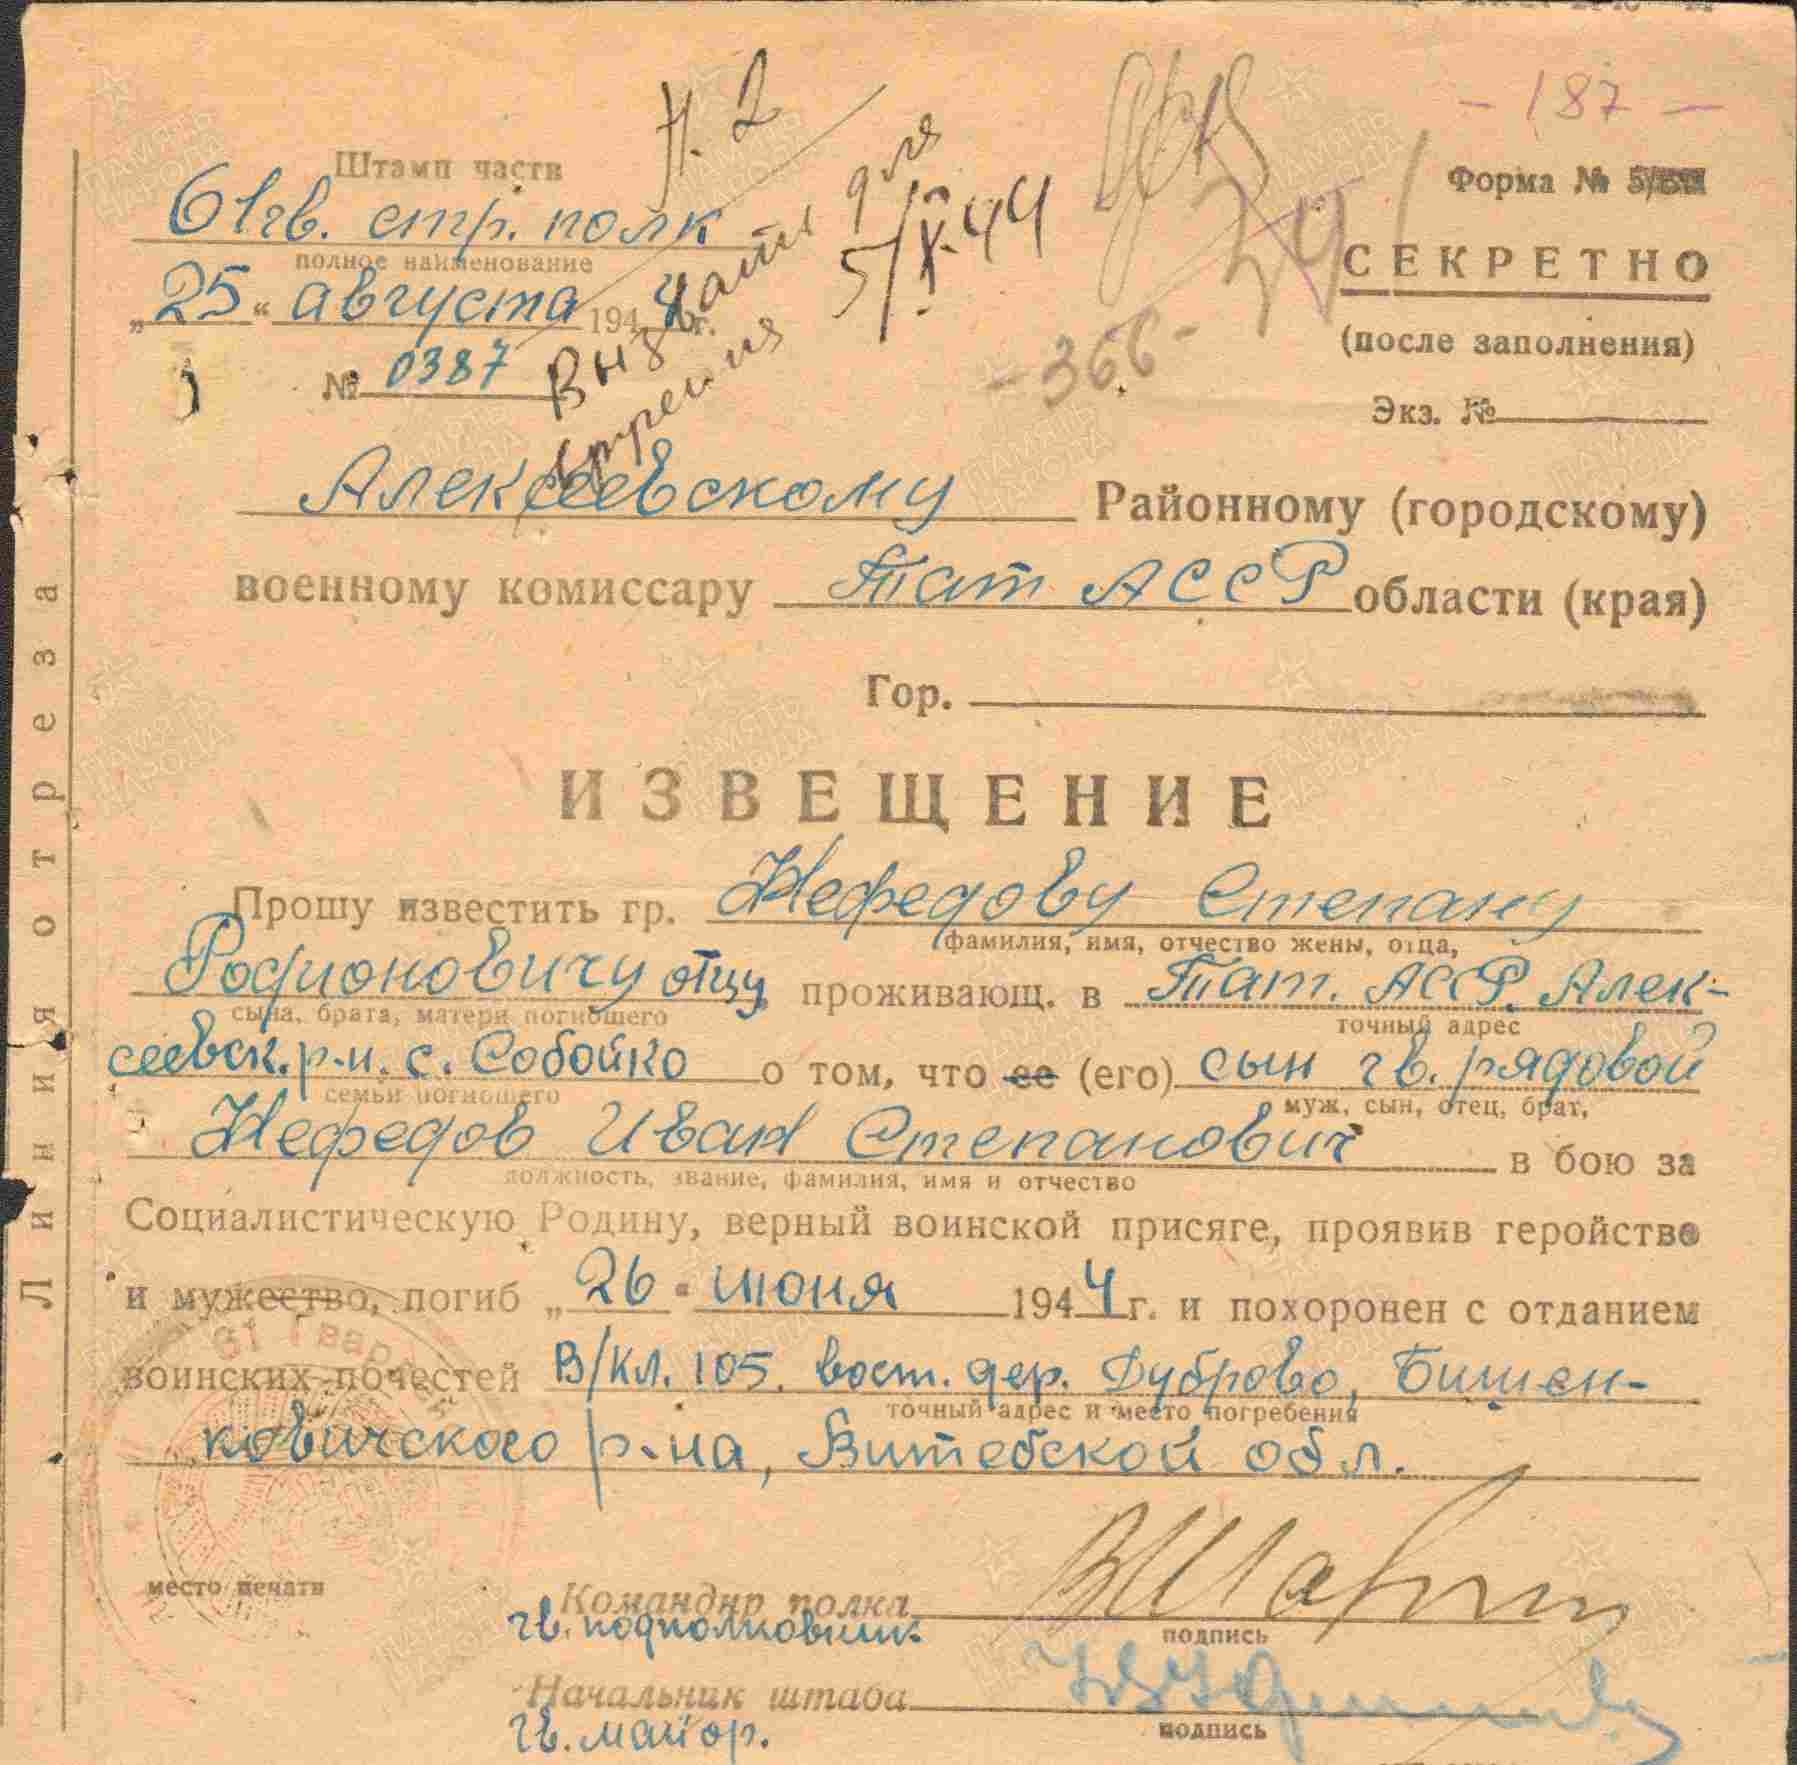 - 187 -
Н. 2
Штамп части
Форма № 5/
61 гв. стр. полк
полное наименование
СЕКРЕТНО
„25“ августа 1944 г.
5/X-44
Вызвать для
вручения
(после заполнения)
№ 0387
- 366 -
Экз. №
Алексеевскому Районному (городскому)
военному комиссару Тат АССР области (края)
Гор.
ИЗВЕЩЕНИЕ
Прошу известить гр. Нефедову Степану
фамилия, имя, отчество жены, отца,
Родионовичу отцу, проживающ. в Тат. АССР. Алек-
сына, брата, матери погибшего
точный адрес
сеевск. р-н. с. Собойко о том, что ее (его) сын гв. рядовой
семьи погибшего
муж, сын, отец, брат,
Нефедов Иван Степанович в бою за
должность, звание, фамилия, имя и отчество
Социалистическую Родину, верный воинской присяге, проявив геройство
и мужество, погиб „26“ июня 1944 г. и похоронен с отданием
воинских почестей В/Кл. 105. вост. дер. Дуброво, Бишен-
точный адрес и место погребения
ковичского р-на, Витебской обл.
61 Гвард
место печати
Командир полка
гв. подполковник
подпись
Начальник штаба
гв. майор.
подпись
Линия отреза
ПАМЯТЬ НАРОДА